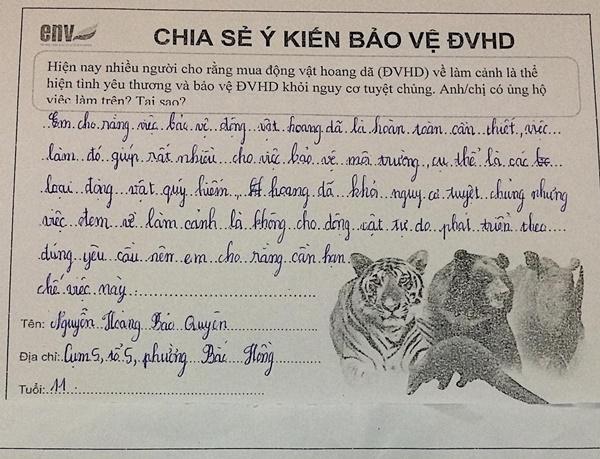 env
CHIA SẺ Ý KIẾN BẢO VỆ ĐVHD
Hiện nay nhiều người cho rằng mua động vật hoang dã (ĐVHD) về làm cảnh là thể
hiện tình yêu thương và bảo vệ ĐVHD khỏi nguy cơ tuyệt chủng. Anh/chị có ủng hộ
việc làm trên? Tại sao?
Em cho rằng việc bảo vệ động vật hoang dã là hoàn toàn cần thiết, việc
làm đó giúp rất nhiều cho việc bảo vệ môi trường, cụ thể là các
loại động vật quý hiếm, hoang dã khỏi nguy cơ tuyệt chủng nhưng
việc đem về làm cảnh là không cho động vật tự do phát triển theo
đúng yêu cầu nên em cho rằng cần hạn
chế việc này
Tên: Nguyễn Hoang Bảo Quyên
Địa chỉ: Cụm 5, tổ 5, phường Bãi Hồng
Tuổi: 11